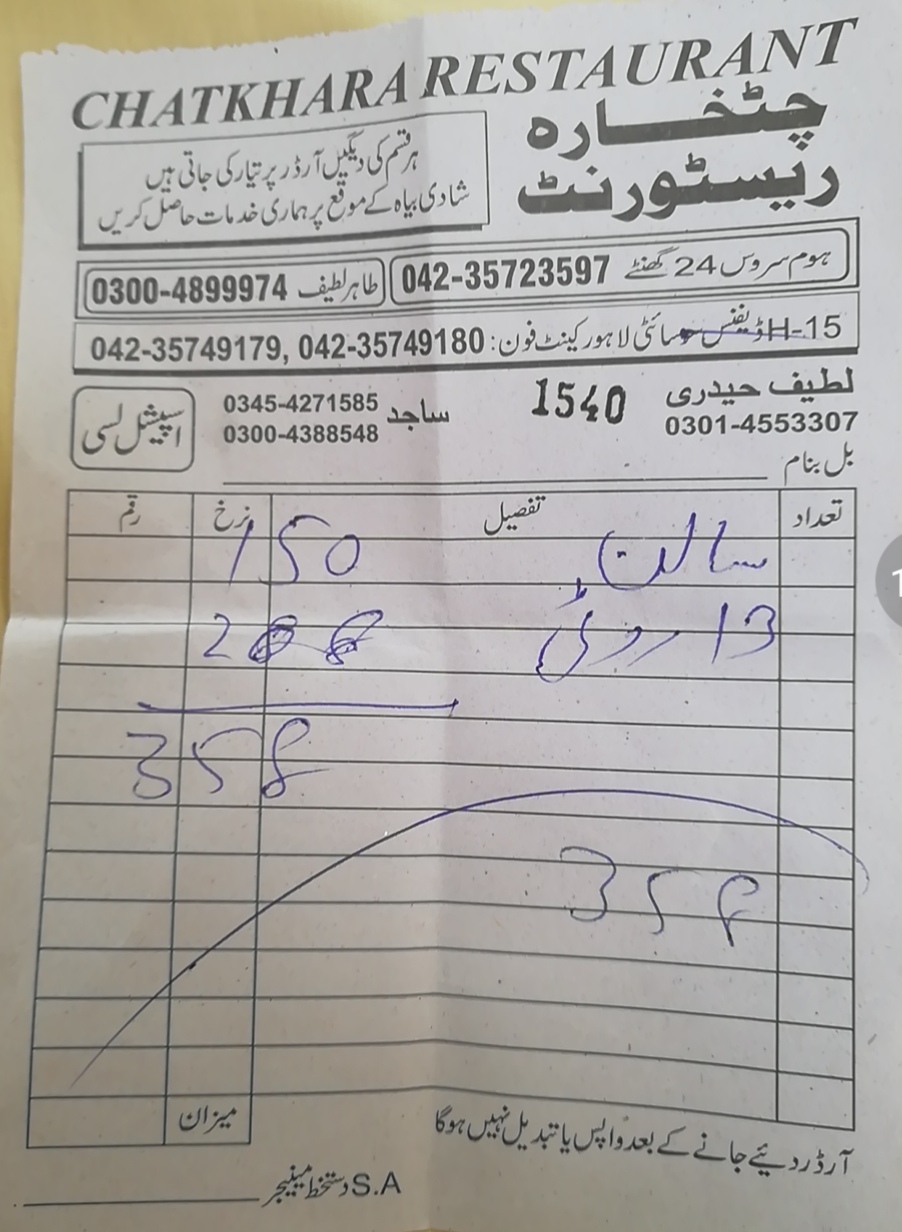 CHATKHARA RESTAURANT
چٹخارہ
ریسٹورنٹ
ہر قسم کی دیگیں آرڈر پر تیار کی جاتی ہیں
شادی بیاہ کے موقع پر ہماری خدمات حاصل کریں
ہوم سروس 24 گھنٹے 042-35723597
طاہر لطیف 0300-4899974
H-15 ڈیفنس سوسائٹی لاہور کینٹ فون: 042-35749179, 042-35749180
لطیف حیدری
0301-4553307
1540
ساجد 0345-4271585
0300-4388548
اسپیشل لسی
بل بنام
تعداد تفصیل نرخ رقم
سالن 150
13 روٹی 208
358
358
میزان
آرڈر دیئے جانے کے بعد واپس یا تبدیل نہیں ہوگا
S.A دستخط مینیجر